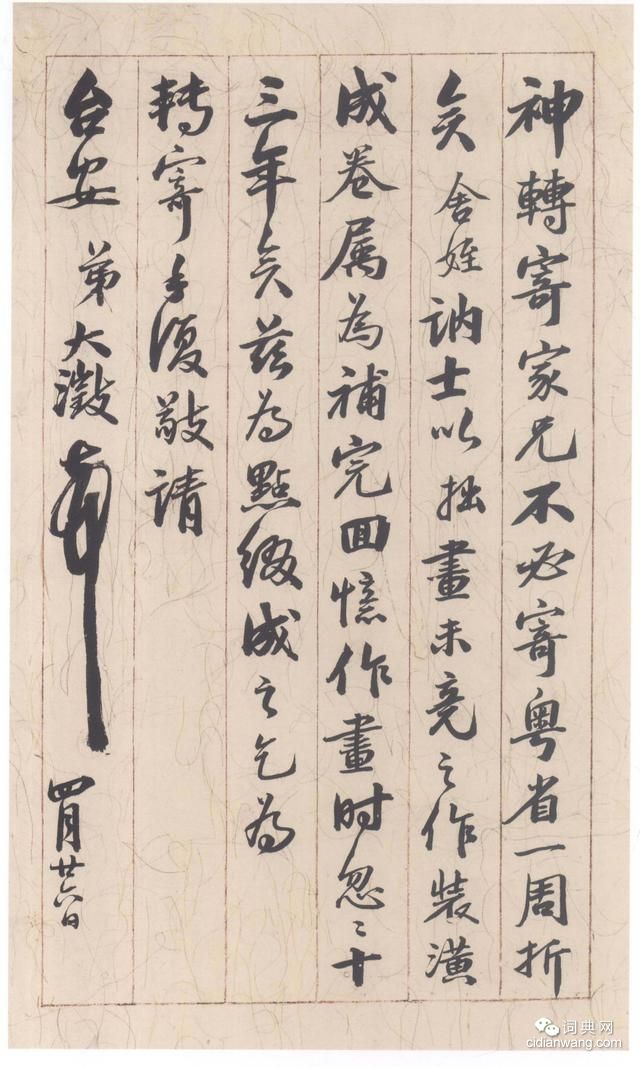 神轉寄家兄不必寄粵省一周折
矣舍姪訥士以拙畫未竟之作裝潢
成卷属為補完回憶作畫时忽忽十
三年矣茲為點綴成之乞為
轉寄手復敬請
台安弟大澂頓首
四月廿六日
词典网
cidianwang.com